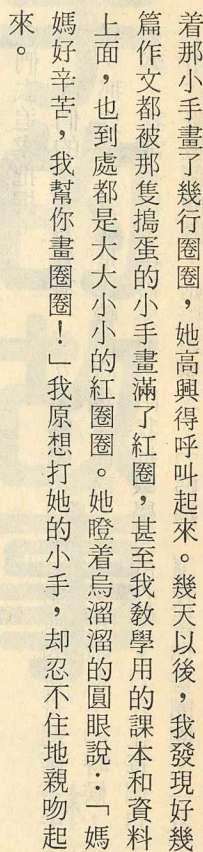 着那小手畫了幾行圈圈，她高興得呼叫起來。幾天以後，我發現好幾
篇作文都被那隻搗蛋的小手畫滿了紅圈，甚至我教學用的課本和資料
上面，也到處都是大大小小的紅圈圈。她瞪着烏溜溜的圓眼說：「媽
媽好辛苦，我幫你畫圈圈！」我原想打她的小手，却忍不住地親吻起
來。